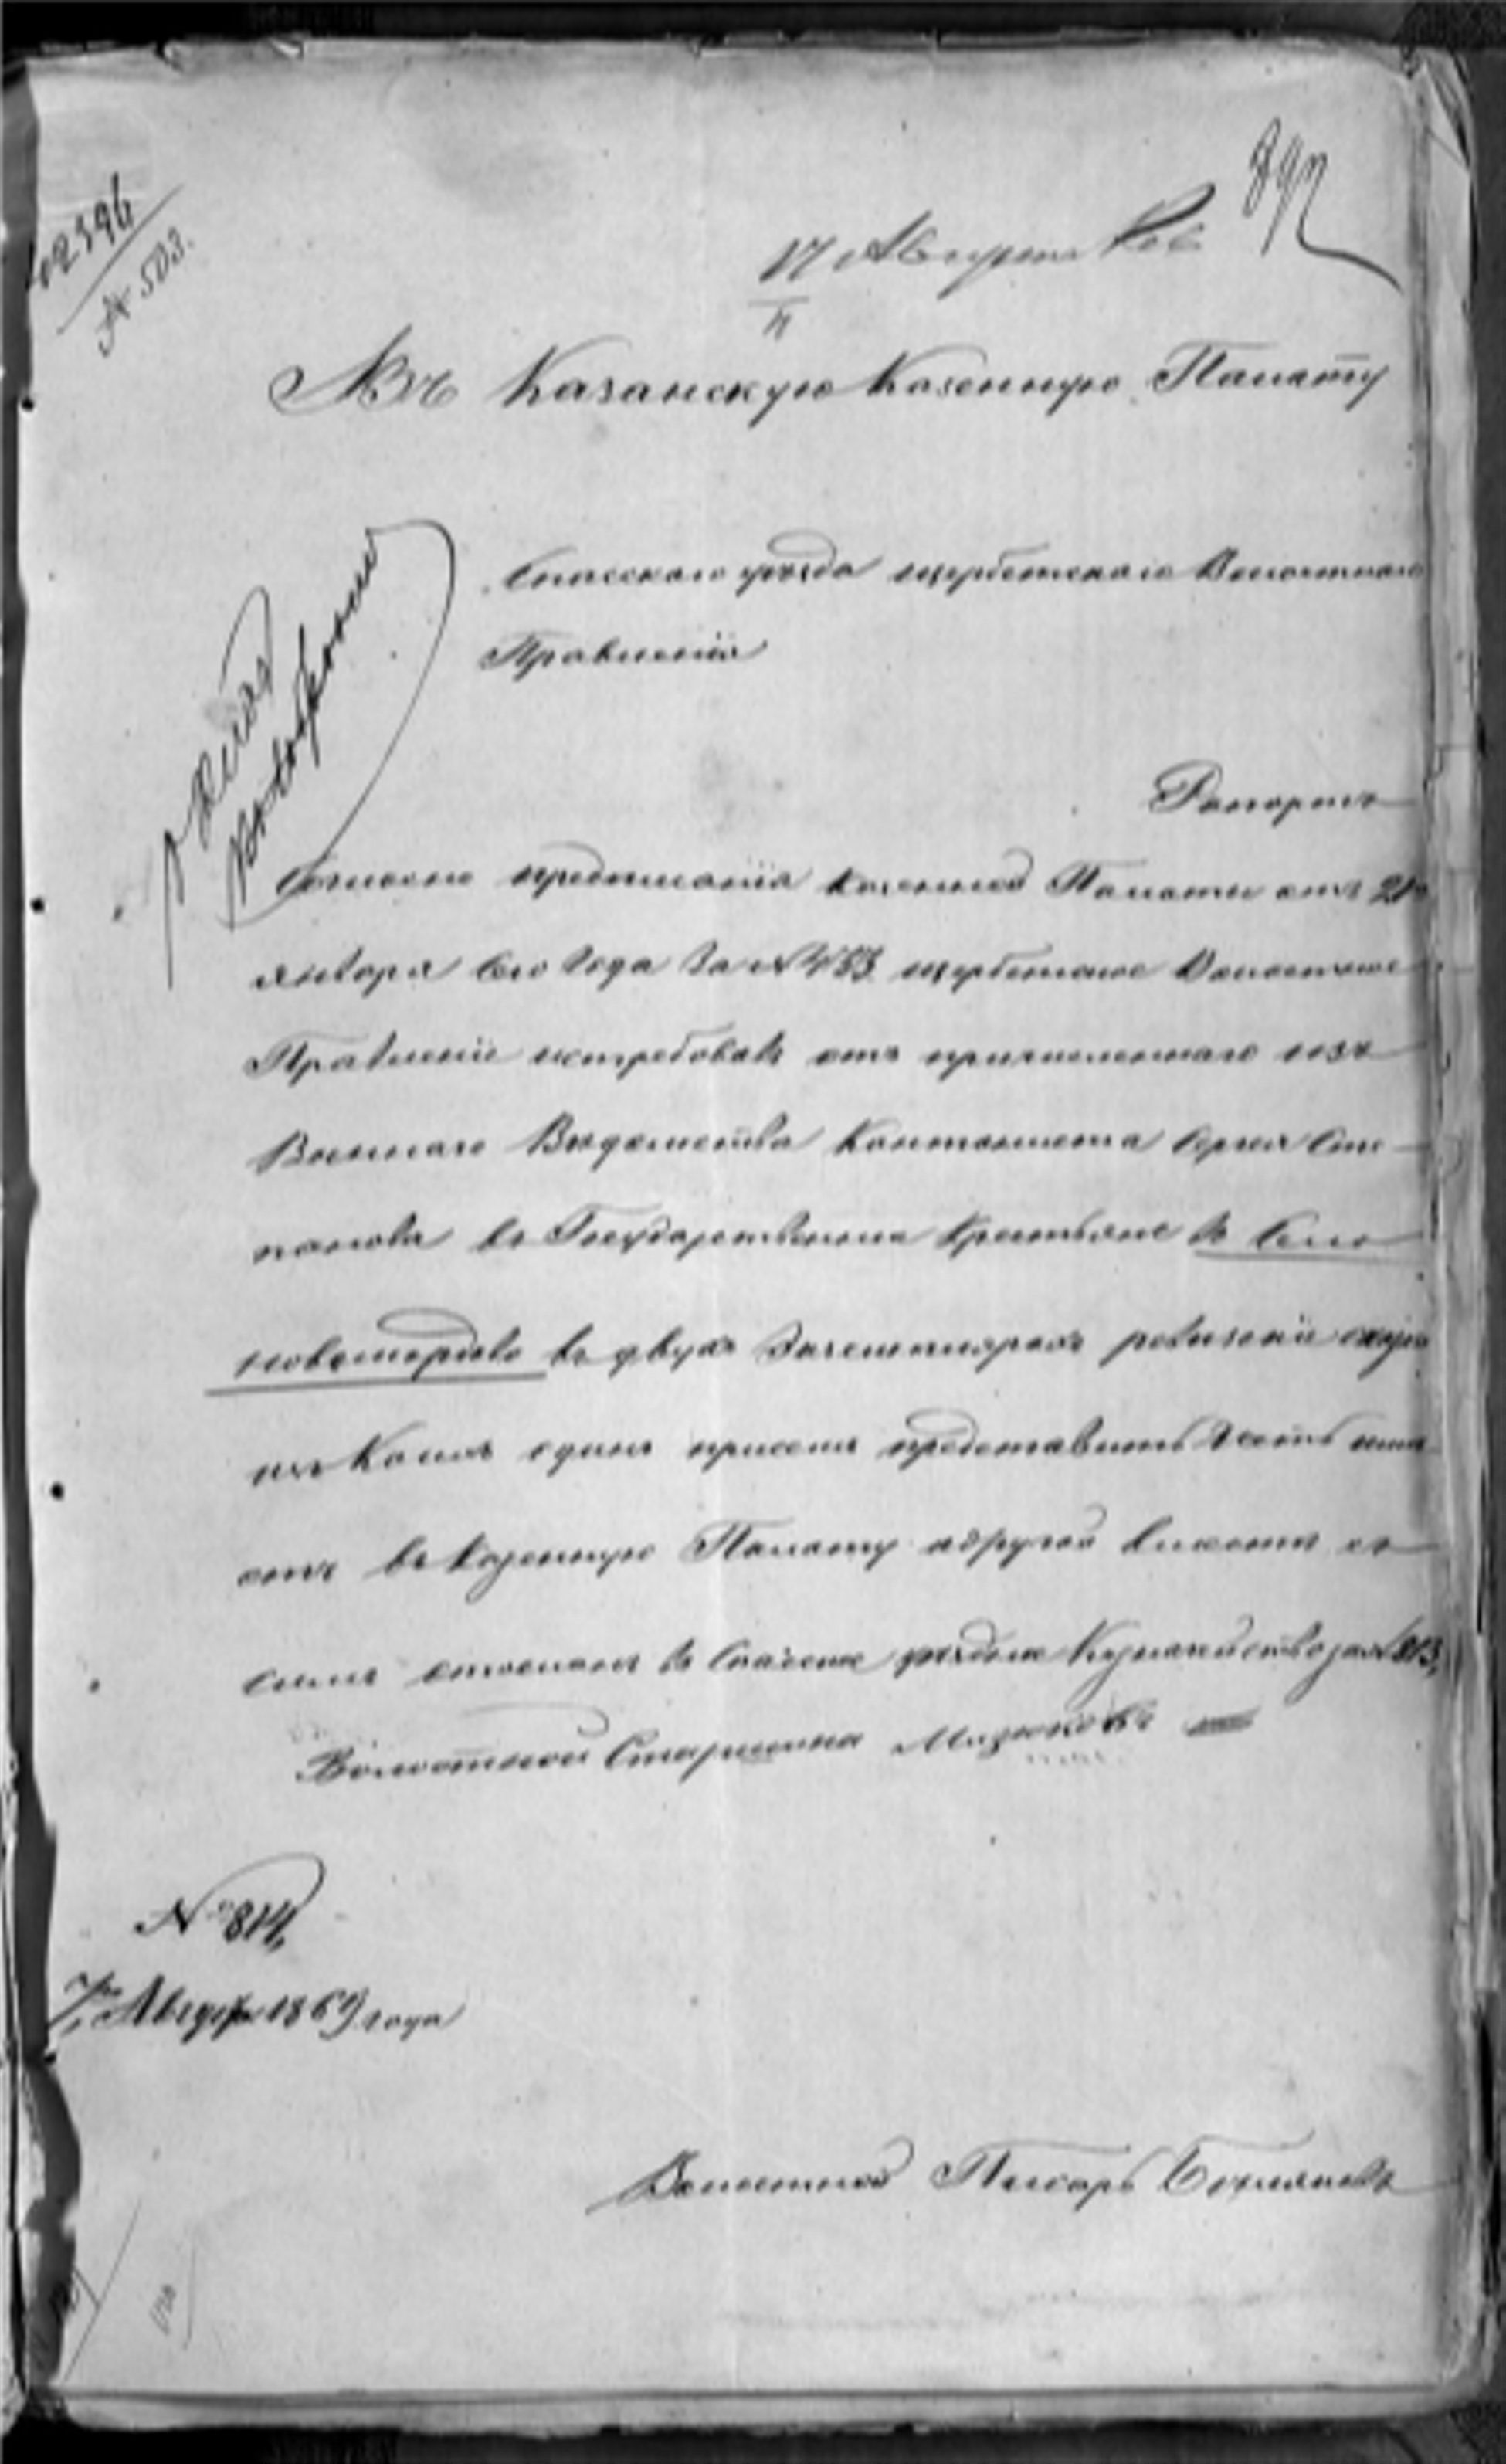 897
2396
№ 503.
17 Августа
Въ Казанскую Казенную Палату
Спасскаго уѣзда щербетскаго Волостнаго
Правленія
Рапортъ
Согласно предписанія Казенной Палаты отъ 21го
января сего года за № 453 щербетское Волостное
Правленіе истребовавъ отъ причисленнаго изъ
Военнаго Вѣдомства Кантониста Сергея Сте
панова въ Государственные Крестьяне въ Село
въ двухъ Экземплярахъ
изъ Коихъ одинъ присемъ представить честь има
отъ въ Казенную Палату адругой вмѣстѣ съ
симъ отосланъ въ Спаское уѣздное Казначейство за № 813,
Волостной Старшина
№ 814,
7го Августа 1869 года
Волостной Писарь